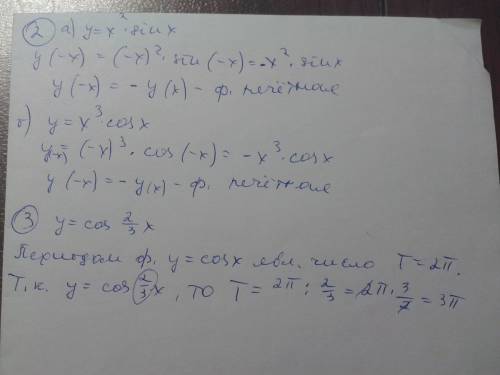 2 а) y = x² · sin x
y(-x) = (-x)² · sin(-x) = -x² · sin x
y(-x) = -y(x) - ф. нечётная
б) y = x³ · cos x
y(-x) = (-x)³ · cos(-x) = -x³ · cos x
y(-x) = -y(x) - ф. нечётная
3 y = cos 2/3 x
Периодом ф. y = cos x явл. число T = 2π.
Т.к. y = cos 2/3 x, то T = 2π : 2/3 = 2π · 3/2 = 3π